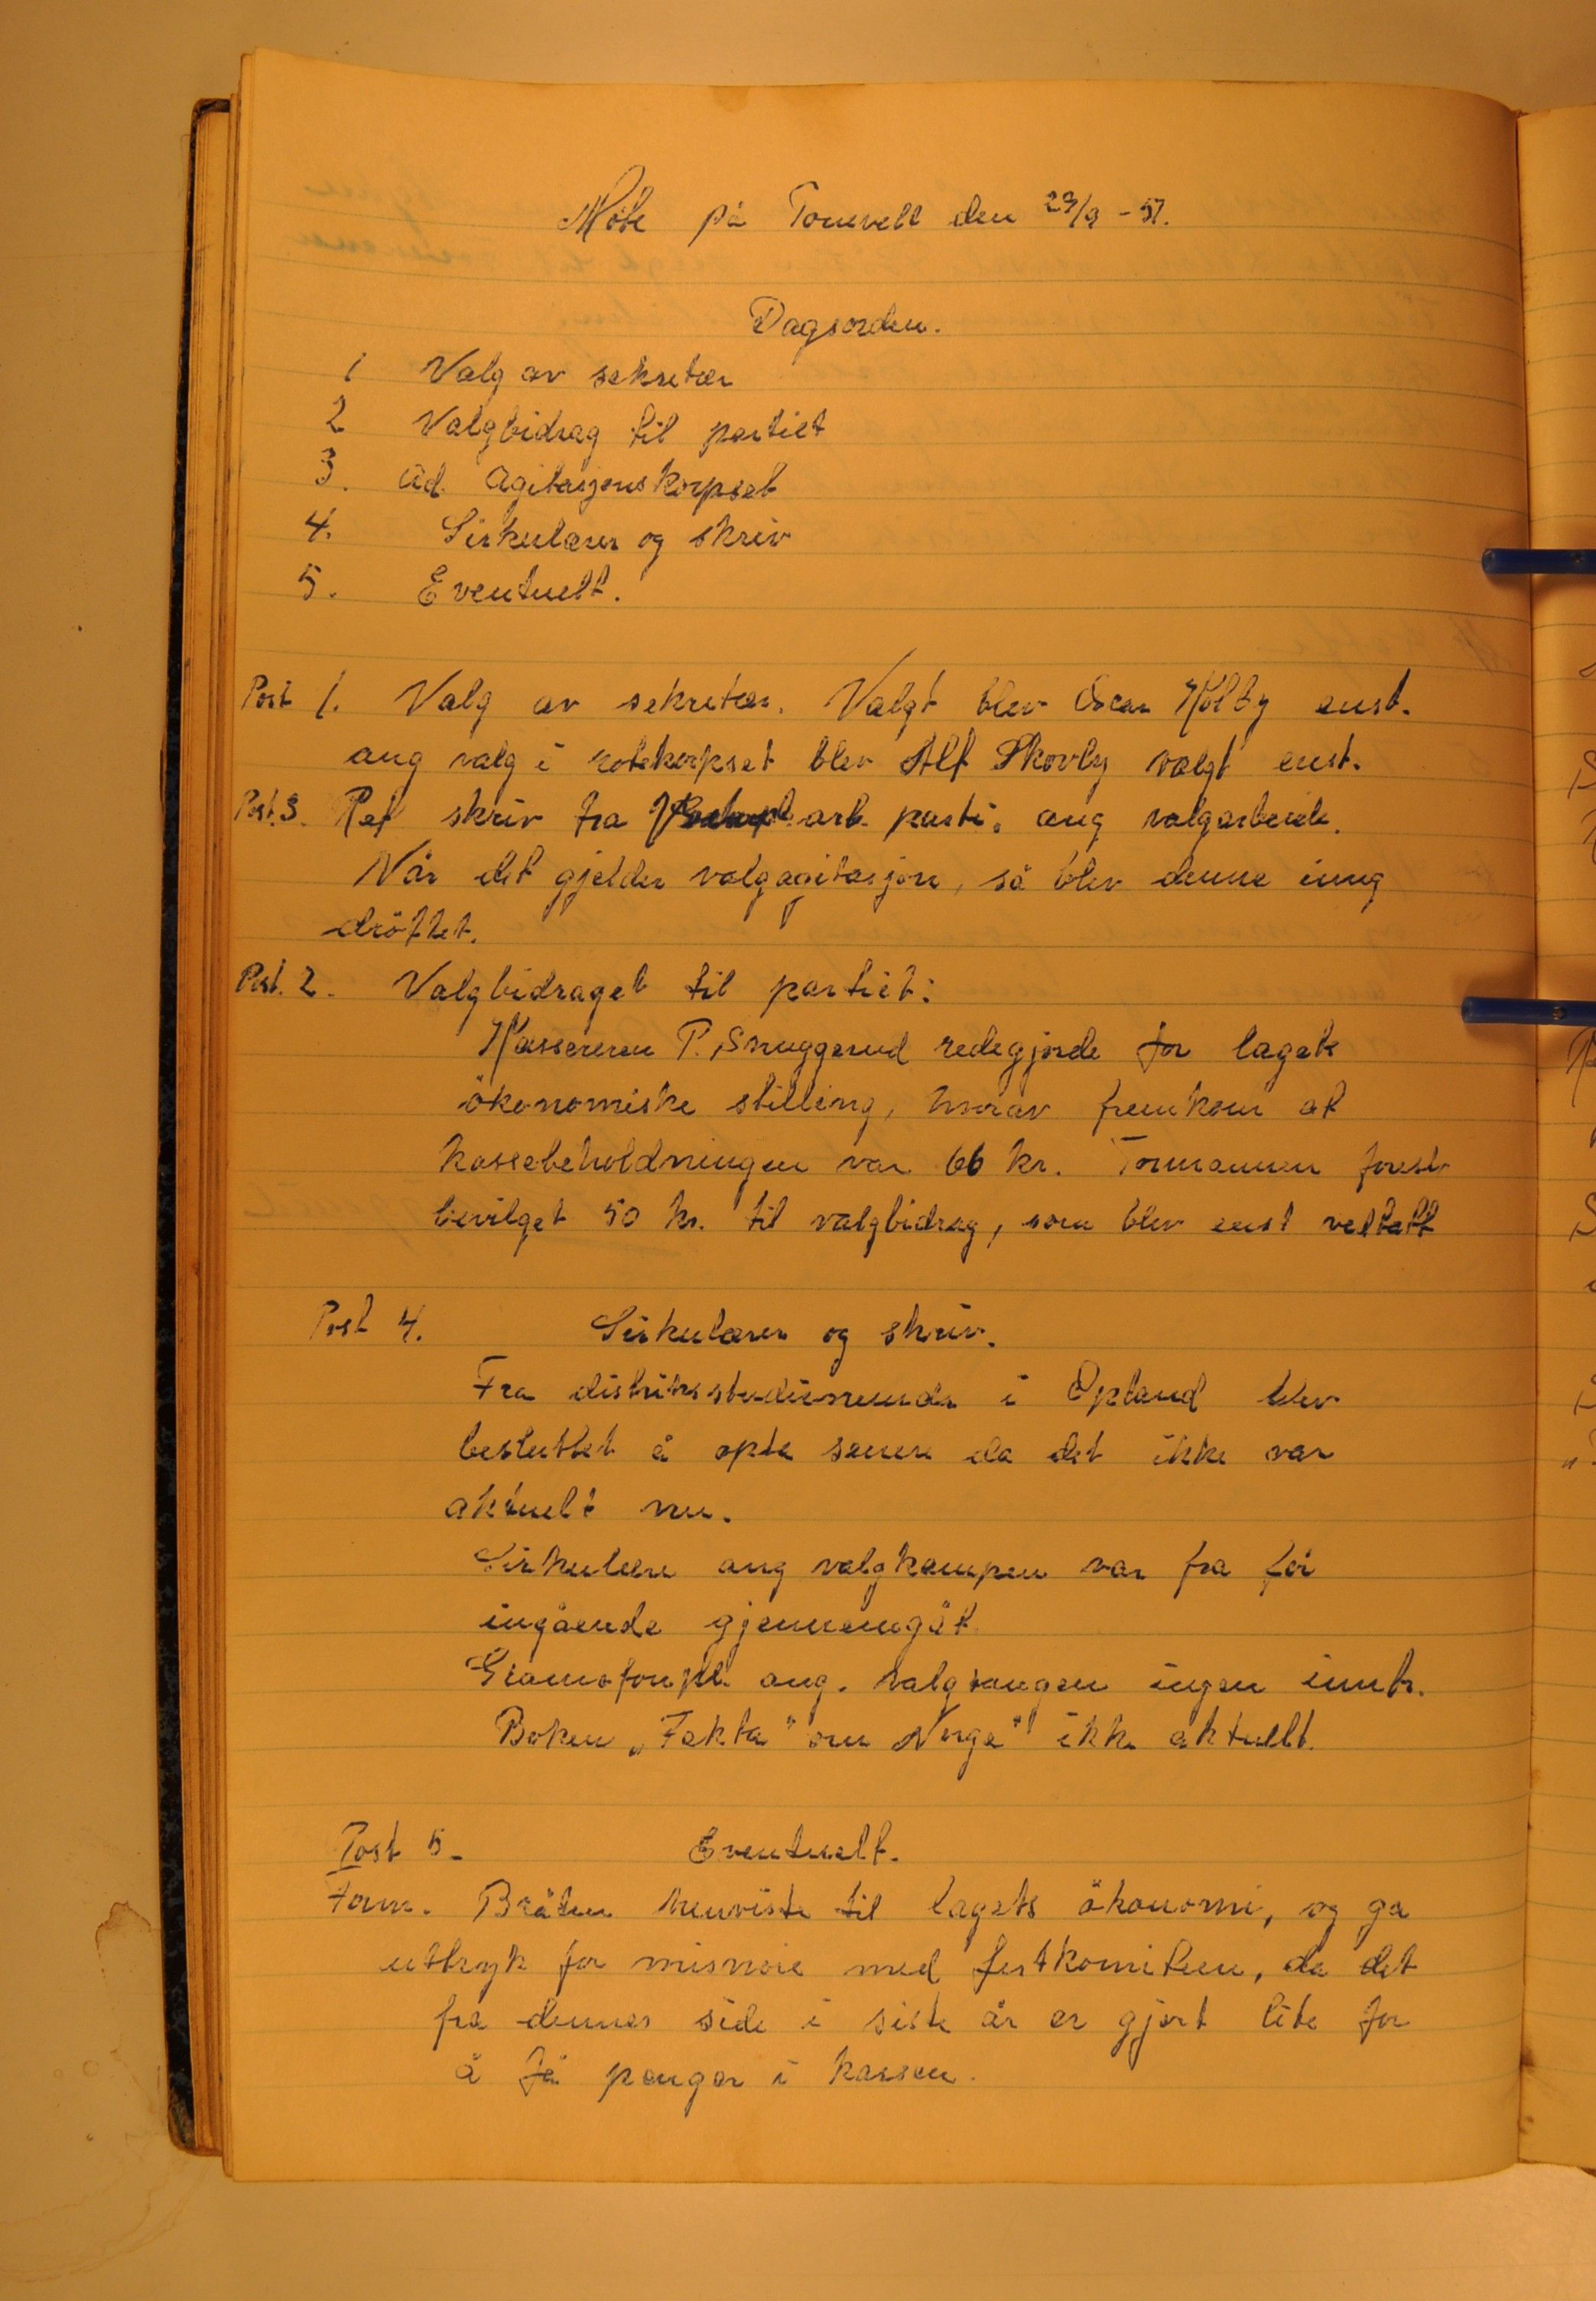 Möte på Tomvelt den 23/9 - 57.
Dagsorden.
1 Valg av sekretær
2 Valgbidrag til partiet
3. Ad. Agitasjonskorpset
4. Sirkulærer og skriv
5. Eventuelt.
Post 1. Valg av sekretær. Valgt blev Oscar Kolby enst.
ang valg i rodekorpset blev Alf Skovly valgt enst.
Post. 3. Ref skriv fra arb. parti. ang valgarbeide.
Når det gjelder valgagitasjon, så blev denne inng
dröftet.
Post. 2. Valgbidraget til partiet:
Kassereren P. Snuggerud redegjorde for lagets
ökonomiske stilling, hvorav fremkom at
kassebeholdningen var 66 kr. Formannen foresl.
bevilget 50 kr. til valgbidrag, som blev enst vedtatt
Post 4. Sirkulærer og skriv.
Fra distriksstudienemda i Opland blev
besluttet å opta senere da det ikke var
aktuelt nu.
Sirkulære ang valgkampen var fra før
ingående gjennemgåt
Gramofonpl. ang. valgsangen ingen inntr.
Boken „Fakta" om Norge" ikke aktuelt.
Post 5. Eventuelt.
Form. Bråten henviste til lagets ökonomi, og ga
uttryk for misnoie med festkomiteen, da det
fra dennes side i siste år er gjort lite for
å få penger i kassen.